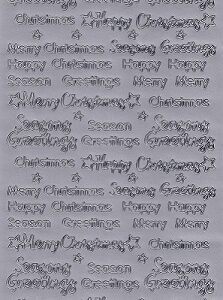 ★Happy Christmas★
Seasons Greetings Season Greetings Seasons Greetings
Merry Christmas Seasons Greetings
Happy Christmas Happy Happy
Season Greetings Merry Merry
★Merry Christmas★ Christmas
Seasons Greetings Season Greetings Seasons Greetings
Christmas ★Happy Christmas★
Merry Christmas Seasons Greetings
Happy Christmas Happy Happy
Season Greetings Merry Merry
★Merry Christmas★ Christmas
Seasons Greetings Season Greetings Seasons Greetings
Christmas ★Happy Christmas★